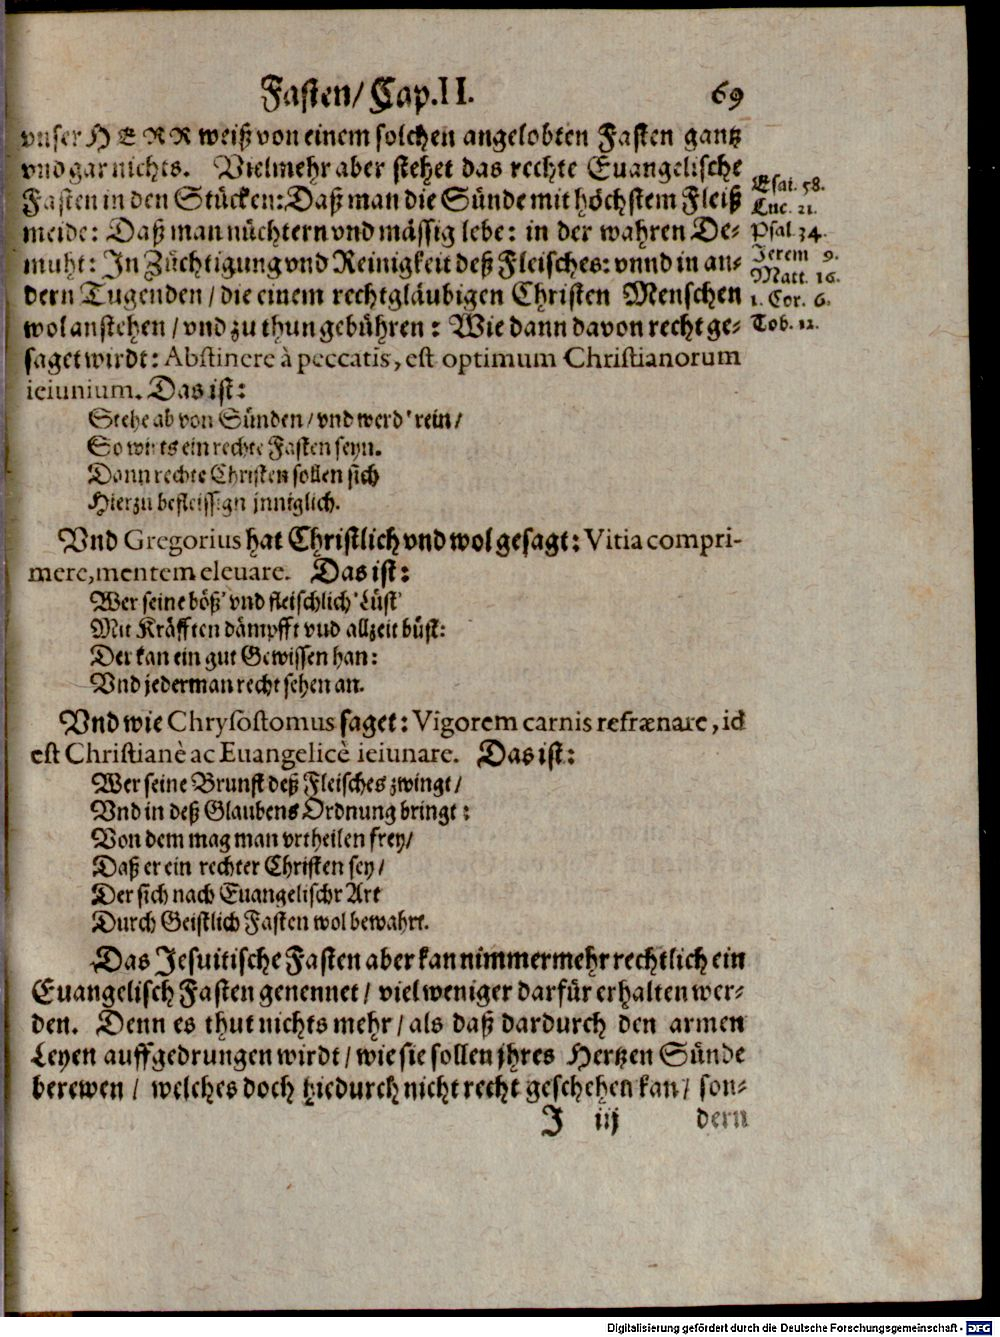 Fasten/ Cap. II. 69
vnser HERR weiß von einem solchen angelobten Fasten gantz
vnd gar nichts. Vielmehr aber stehet das rechte Euangelische
Fasten in den Stücken: Daß man die Sünde mit höchstem Fleiß
meide: Daß man nüchtern vnd mässig lebe: in der wahren De-
muht: In Züchtigung vnd Reinigkeit deß Fleisches: vnnd in an-
dern Tugenden / die einem rechtgläubigen Christen Menschen
wol anstehen / vnd zu thun gebühren: Wie dann davon recht ge-
saget wirdt: Abstinere à peccatis, est optimum Christianorum
ieiunium. Das ist:
Esai. 58.
Luc. 21.
Psal. 34.
Jerem 9.
Matt. 16.
1. Cor. 6.
Tob. 12.
Stehe ab von Sünden / vnd werd' rein /
So wirts ein rechte Fasten seyn.
Dann rechte Christen sollen sich
Hierzu befleissign jnniglich.
Vnd Gregorius hat Christlich vnd wol gesagt: Vitia compri-
mere, mentem eleuare. Das ist:
Wer seine böß' vnd fleischlich' Lüst'
Mit Kräfften dämpfft vnd allzeit büst:
Der kan ein gut Gewissen han:
Vnd jederman recht sehen an.
Vnd wie Chrysostomus saget: Vigorem carnis refrænare, id
est Christianè ac Euangelicè ieiunare. Das ist:
Wer seine Brunst deß Fleisches zwingt /
Vnd in deß Glaubens Ordnung bringt:
Von dem mag man vrtheilen frey /
Daß er ein rechter Christen sey /
Der sich nach Euangelischr Art
Durch Geistlich Fasten wol bewahrt.
Das Jesuitische Fasten aber kan nimmermehr rechtlich ein
Euangelisch Fasten genennet / viel weniger darfür erhalten wer-
den. Denn es thut nichts mehr / als daß dardurch den armen
Leyen auffgedrungen wirdt / wie sie sollen jhres Hertzen Sünde
berewen / welches doch hiedurch nicht recht geschehen kan / son-
J iij dern
Digitalisierung gefördert durch die Deutsche Forschungsgemeinschaft - DFG